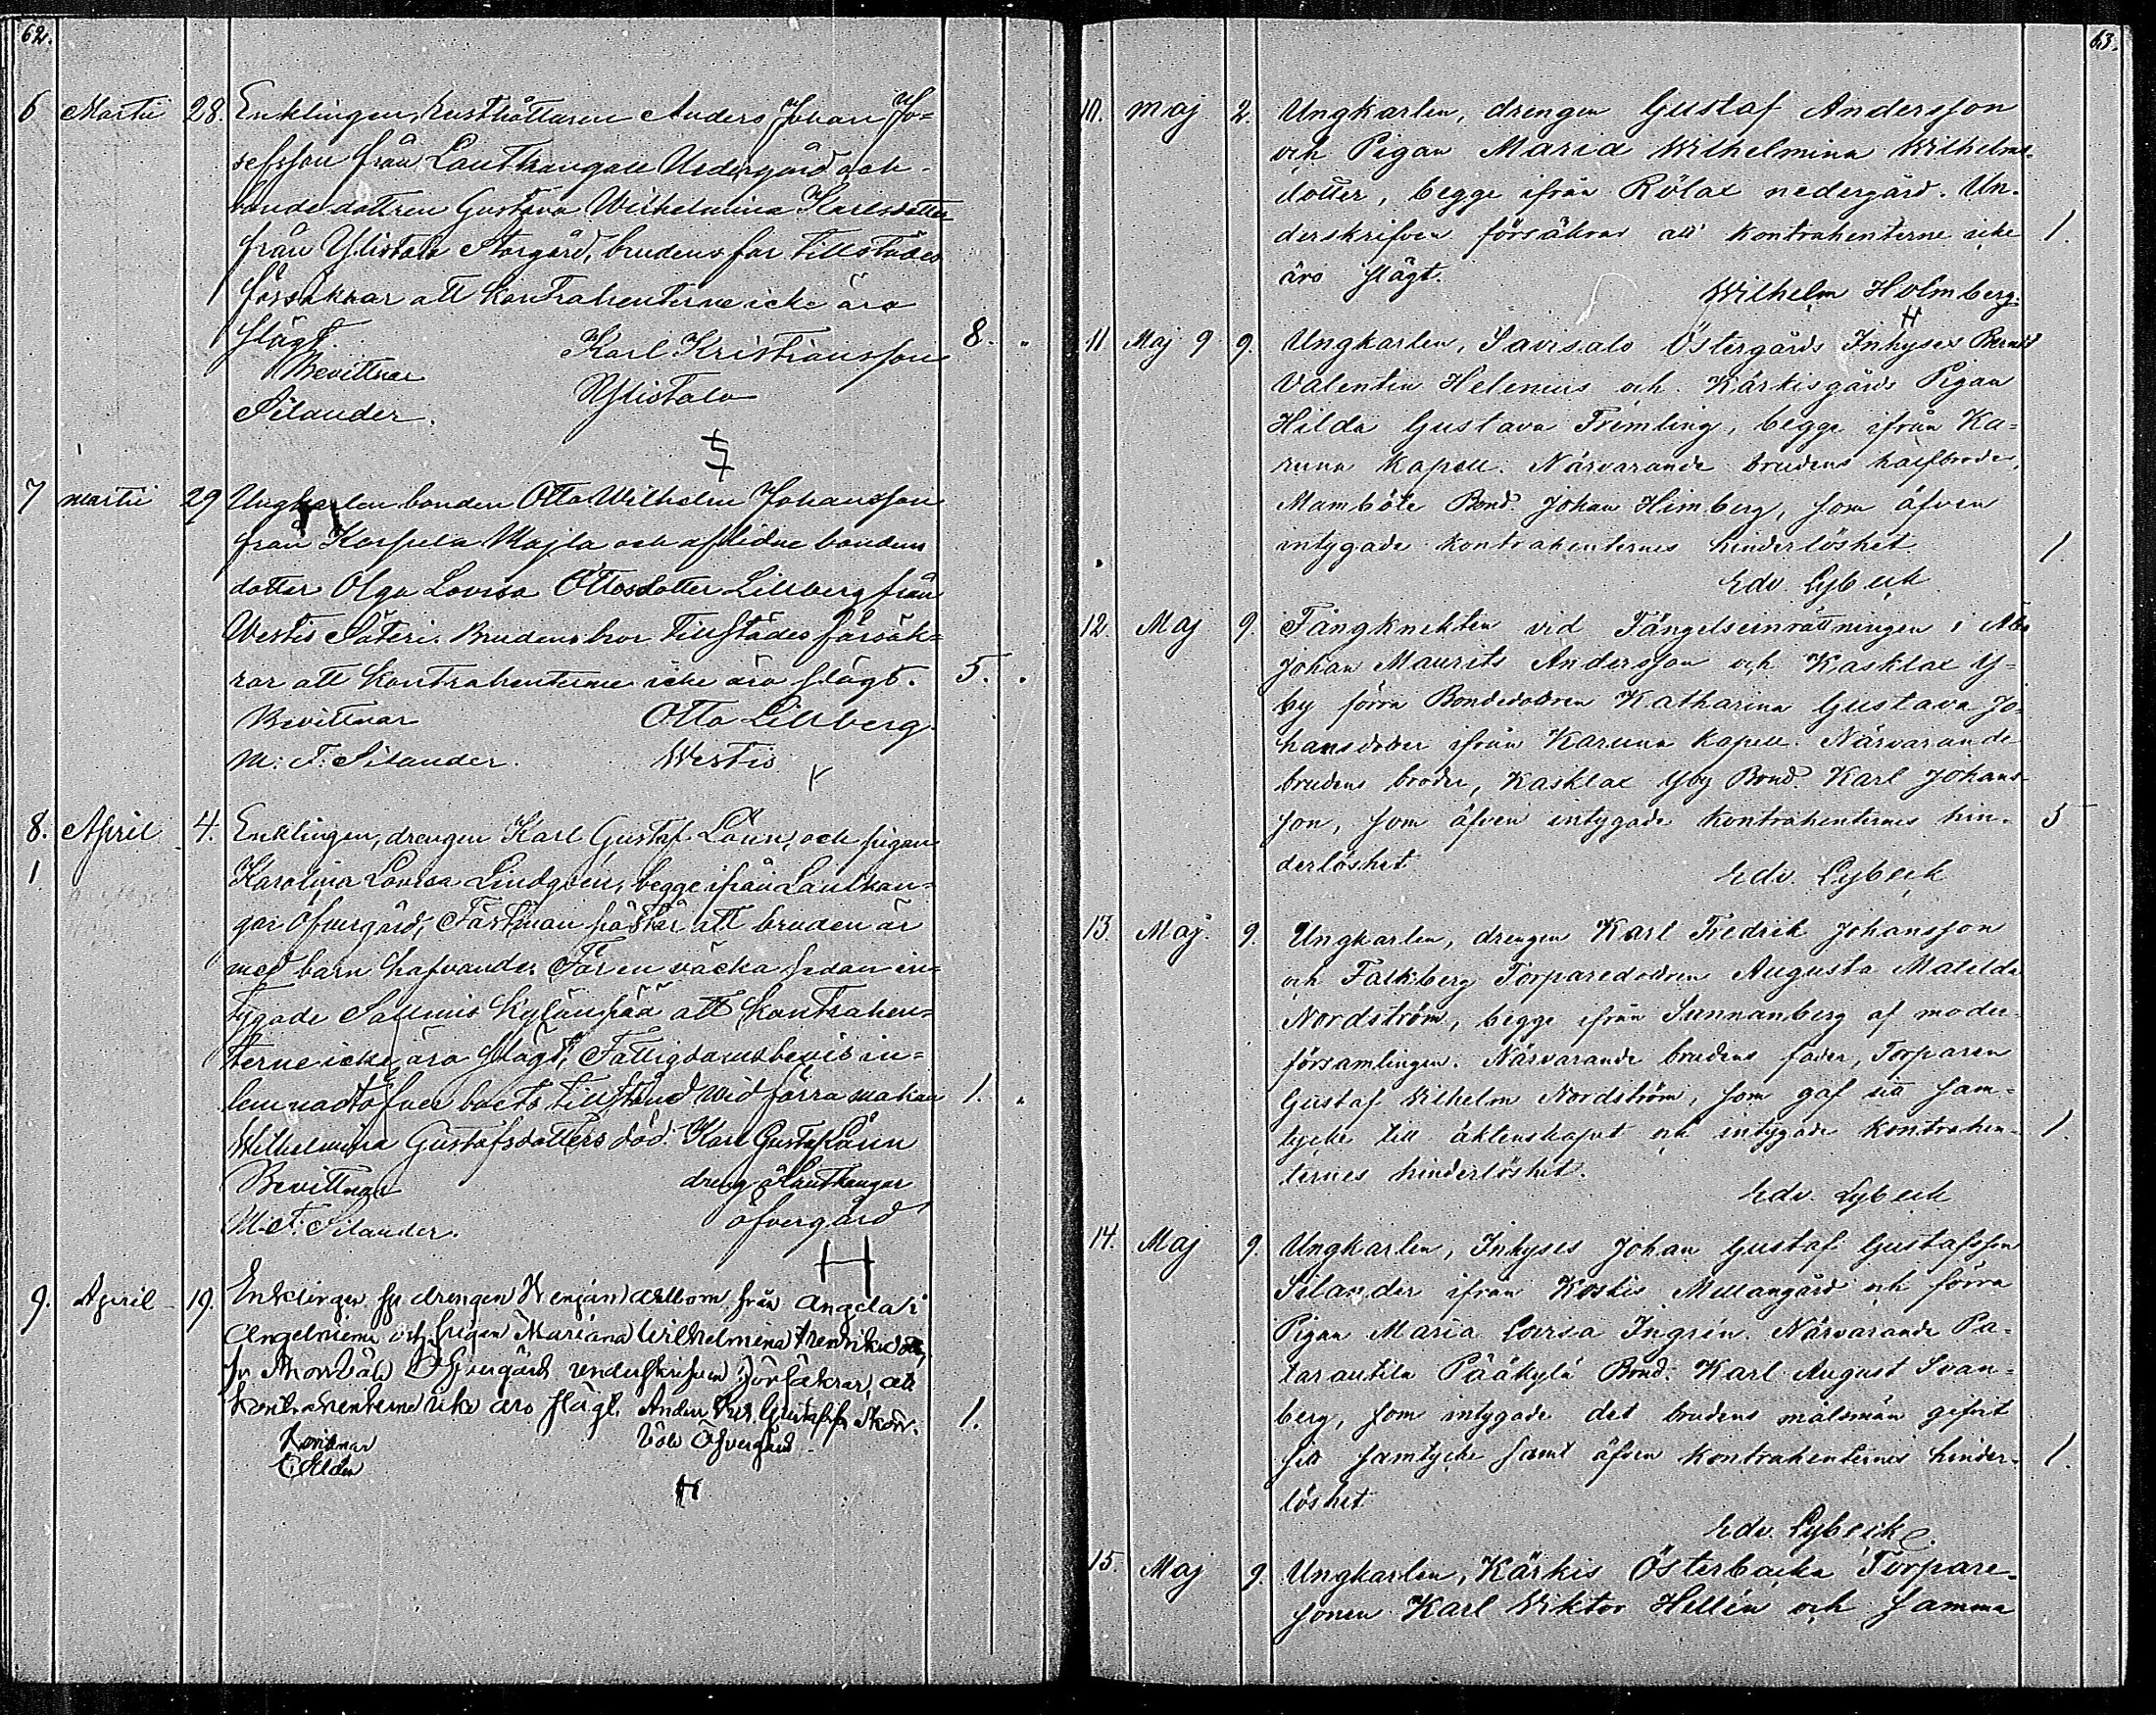 62.
6 Martii 28. Enklingen, Rusthållaren Anders Johan Jo=
sefsson från Lautkangare Nedergård och
bondedottren Gustava Wilhelmina Karlsdotter
från Ylistalo Storgård, brudens far tillstädes
försäkrar att kontrahenterne icke äro
slägt. Karl Kristiansson 8.
Bevittnar Ylistalo
Silander.
7 martii 29 Ungkarlen bonden Otto Wilhelm Johansson
från Majla och aflidne bondens
dotter Olga Lovisa Ottosdotter Lillberg från
Westis Säteri. Brudens bror tillstädes försäk=
rar att kontrahenterne icke äro slägt. 5.
Bevittnar Otto Lillberg
M. T. Silander. Westis
8. April 4. Enklingen, drengen Karl Gustaf och pigan
1 Karolina Lovisa Lindgrén, begge ifrån Lautkan=
gar Öfvergård, Fästman påstår att bruden är
med barn hafvande. För en väcka sedan in=
tygade att kontrahen=
terne icke äro slägt, Fattigdomsbevis in=
lemnadt öfver boets tillstånd wid förra makan 1.
Wilhelmina Gustafsdotters död. Karl Gustaf
Bevittnar dreng å Lautkangar
M. T. Silander. öfvergård
H
9. April 19. Enklingen drengen från Angela i
Angelniemi och pigan Mariana Wilhelmina Henriksdotter
Öfvergård underskrifven försäkrar, att
kontrahenterne icke äro slägt. Gustafss. 1.
Bevittnar Öfvergård
H
63.
10. Maj 2. Ungkarlen, drengen Gustaf Andersson
och Pigan Maria Wilhelmina Wilhelms-
dotter, begge ifrån Rölax nedergård. Un-
derskrifven försäkrar att kontrahenterne icke 1.
äro slägt.
Wilhelm Holmberg.
H
11 Maj 9 9. Ungkarlen, Savisalo Östergårds Inhyses Bernd
Valentin Helenius och Kärkisgårds Pigan
Hilda Gustava Frimling, begge ifrån Ka=
runa Kapell. Närvarande brudens halfbroder,
Mamböle Bond. Johan Himberg, som äfven
intygade kontrahenternes hinderlöshet 1
Edv. Lybeck
12. Maj 9. Fångknekten vid Fängelseinrättningen i Åbo
Johan Maurits Andersson och Kasklax Y-
by förra Bondedottren Katharina Gustava Jo-
hansdotter ifrån Karuna Kapell. Närvarande
brudens broder, Kasklax Yby Bond. Karl Johans-
son, som äfven intygade kontrahenternes hin- 5
derlöshet
Edv. Lybeck
13. Maj. 9. Ungkarlen, drengen Karl Fredrik Johansson
och Falkberg Torparedottren Augusta Matilda
Nordström, begge ifrån Sunnanberg af moder-
församlingen. Närvarande brudens fader, Torparen
Gustaf Wilhelm Nordström, som gaf sitt sam-
tycke till äktenskapet och intygade kontrahen- 1.
ternes hinderlöshet.
Edv. Lybeck
14. Maj 9. Ungkarlen, Inhyses Johan Gustaf Gustafsson
Silander ifrån Koskis Mellangård och förra
Pigan Maria Lovisa Ingrén. Närvarande Pa-
tarautila Pääkylä Bond. Karl August Svan-
berg, som intygade det brudens målsman gifvit
sitt samtycke samt äfven kontrahenternes hinder- 1.
löshet
Edv. Lybeck
15. Maj 9. Ungkarlen, Kärkis Österbacka Torpare-
sonen Karl Wiktor Hellén och samma